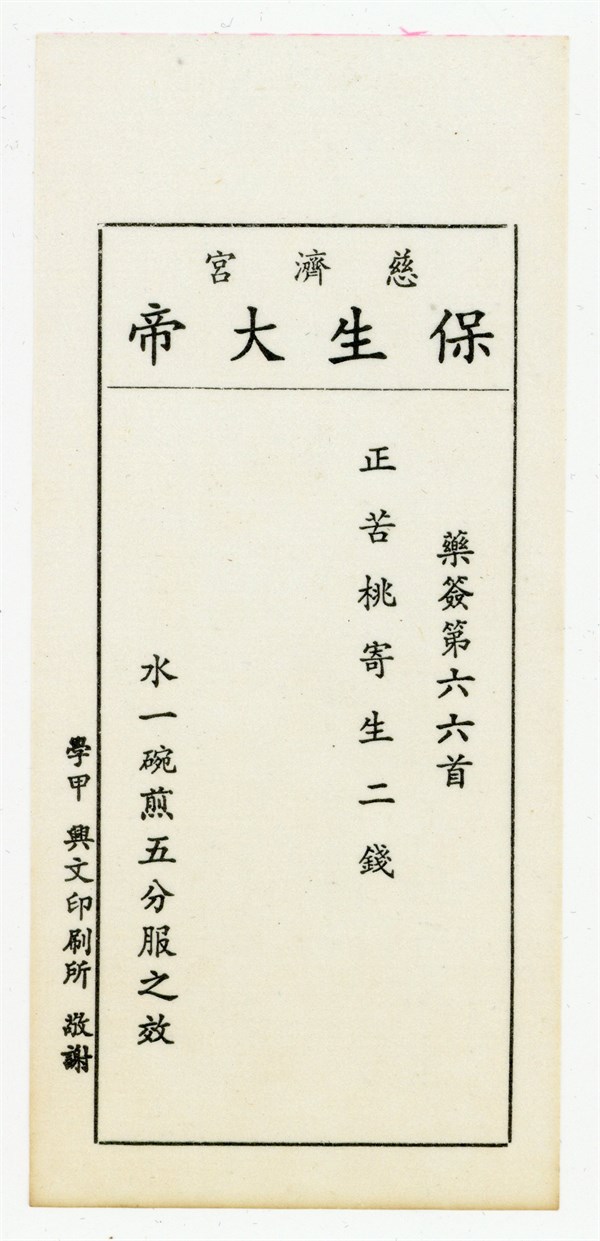 慈濟宮
保生大帝
藥簽第六六首
正苦桃寄生二錢
水一碗煎五分服之效
學甲 興文印刷所 敬謝